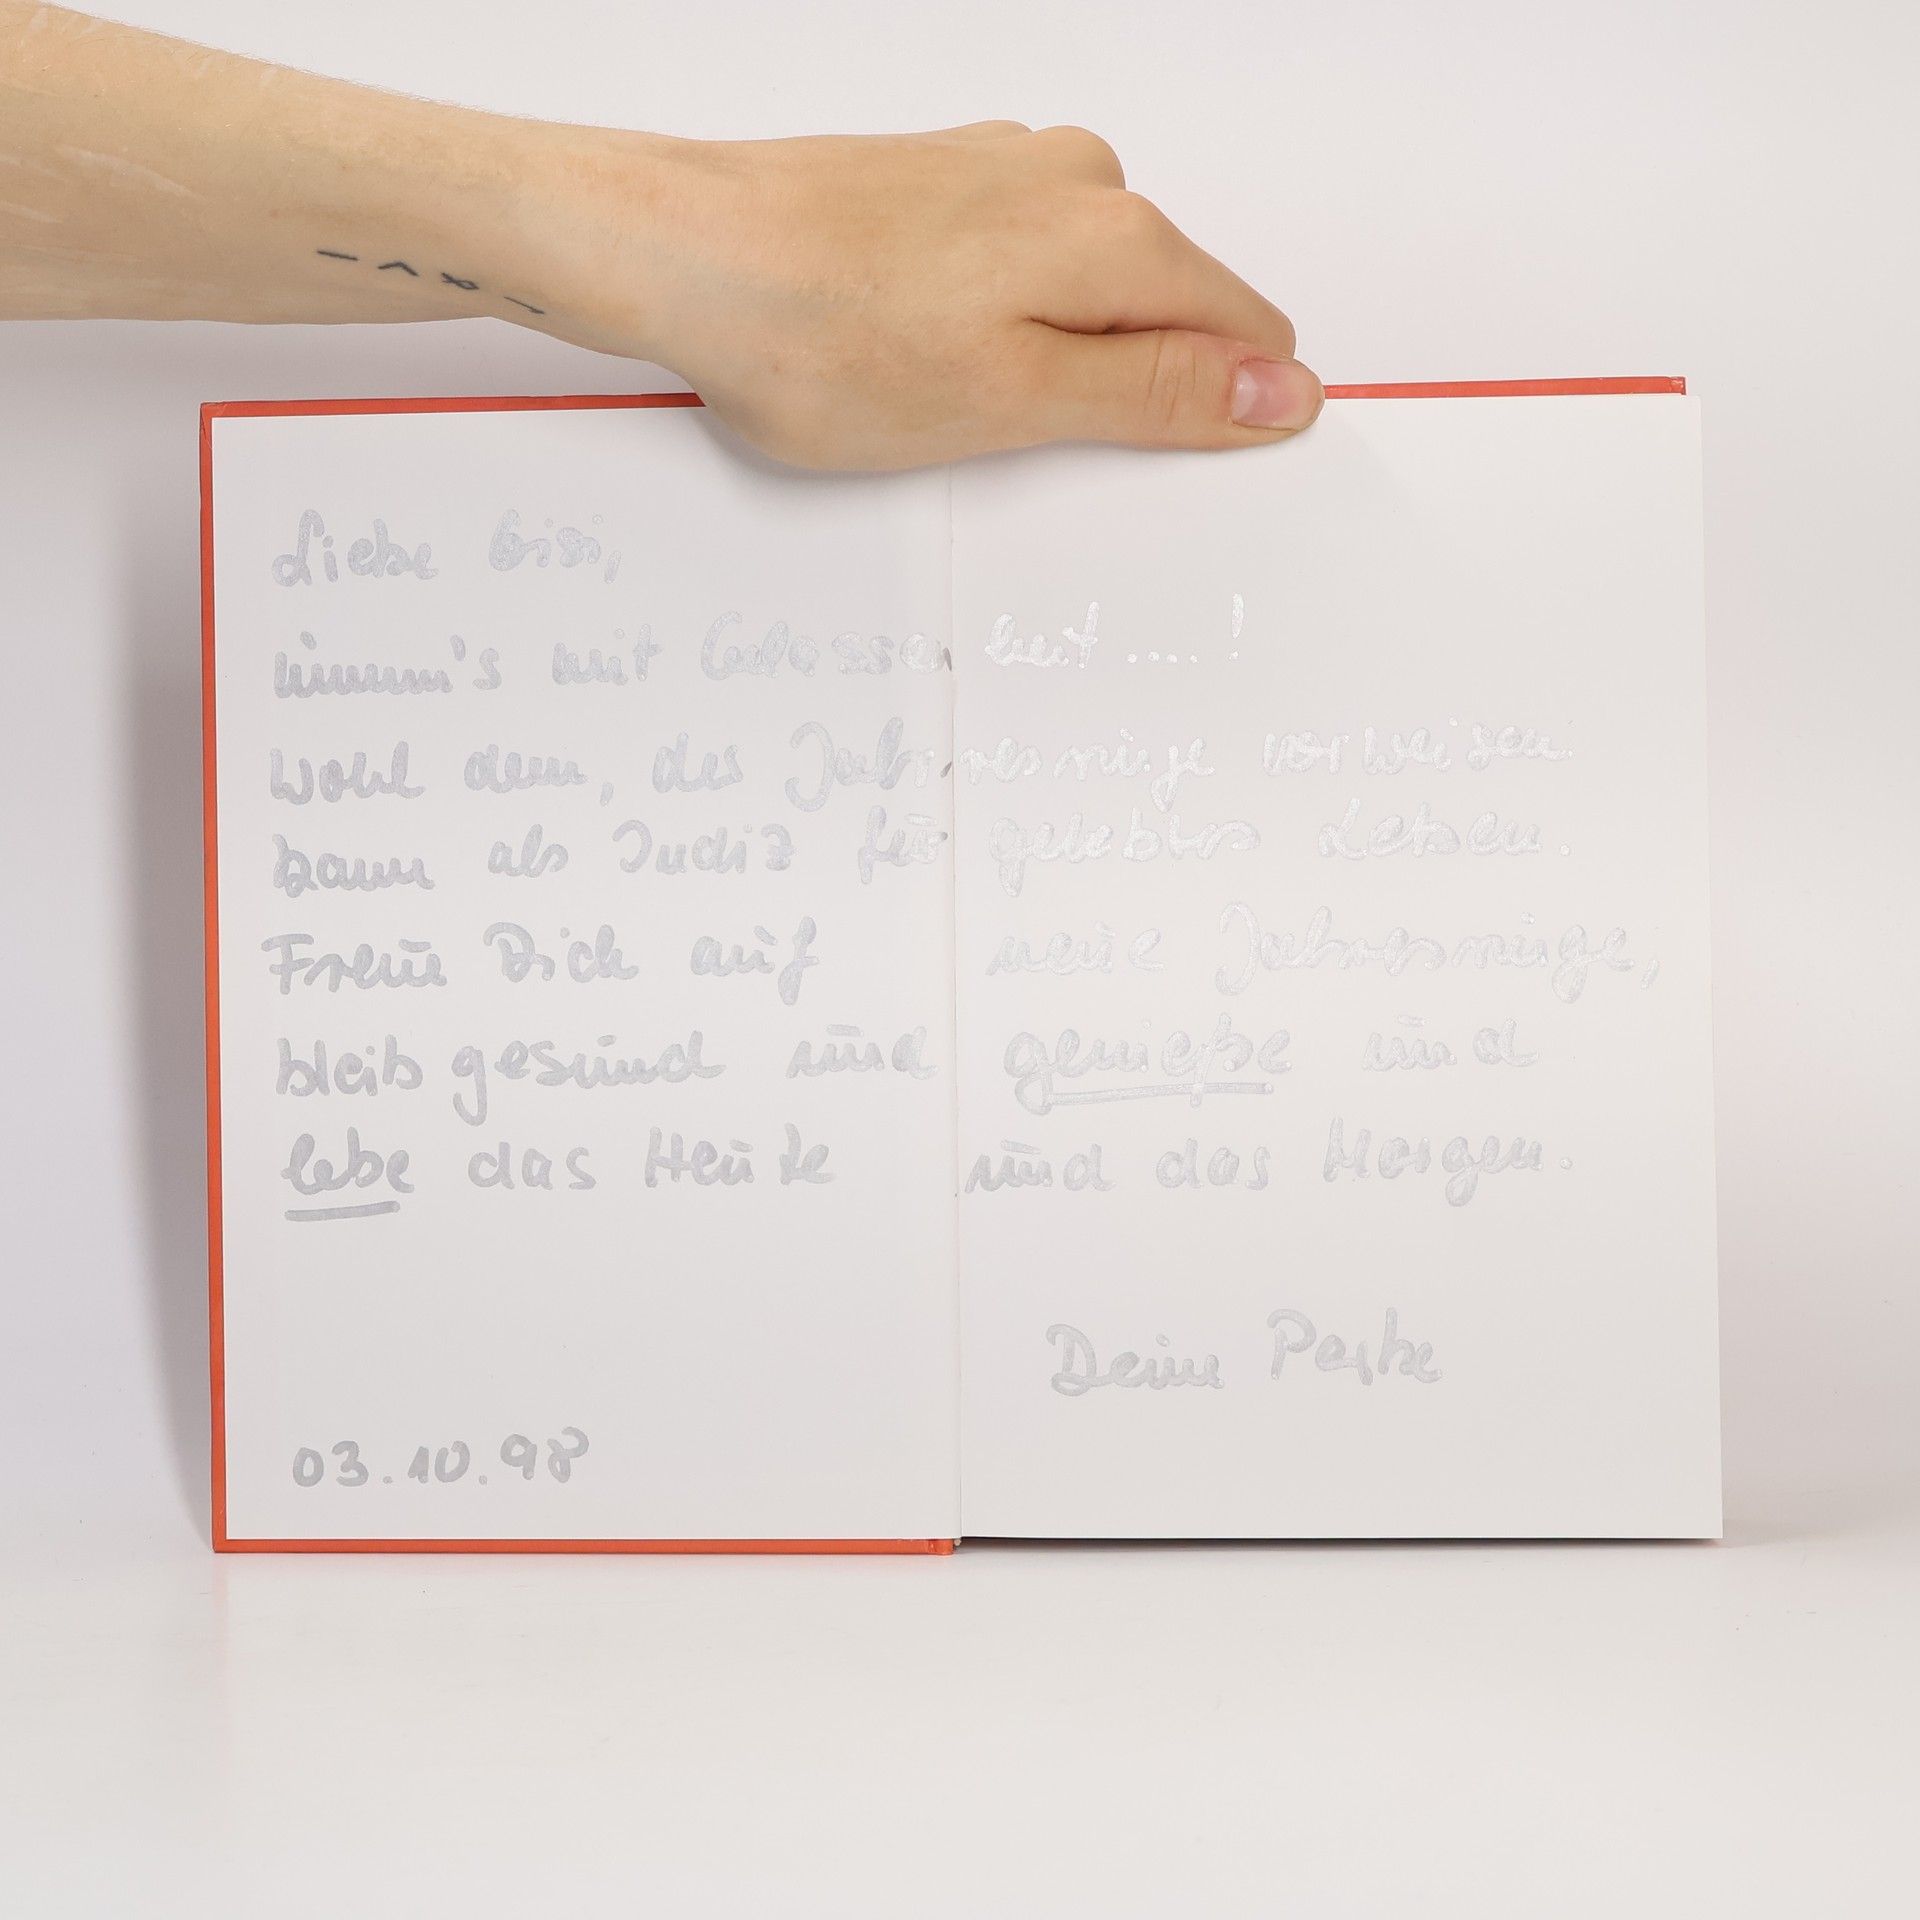 Liebe Gisi,
nimm's mit Gelassenheit ....!
Wohl dem, der Jahresringe vorweisen
kann als Indiz für gelebtes Leben.
Freue Dich auf neue Jahresringe,
bleib gesund und genieße und
lebe das Heute und das Morgen.
Deine
03.10.98